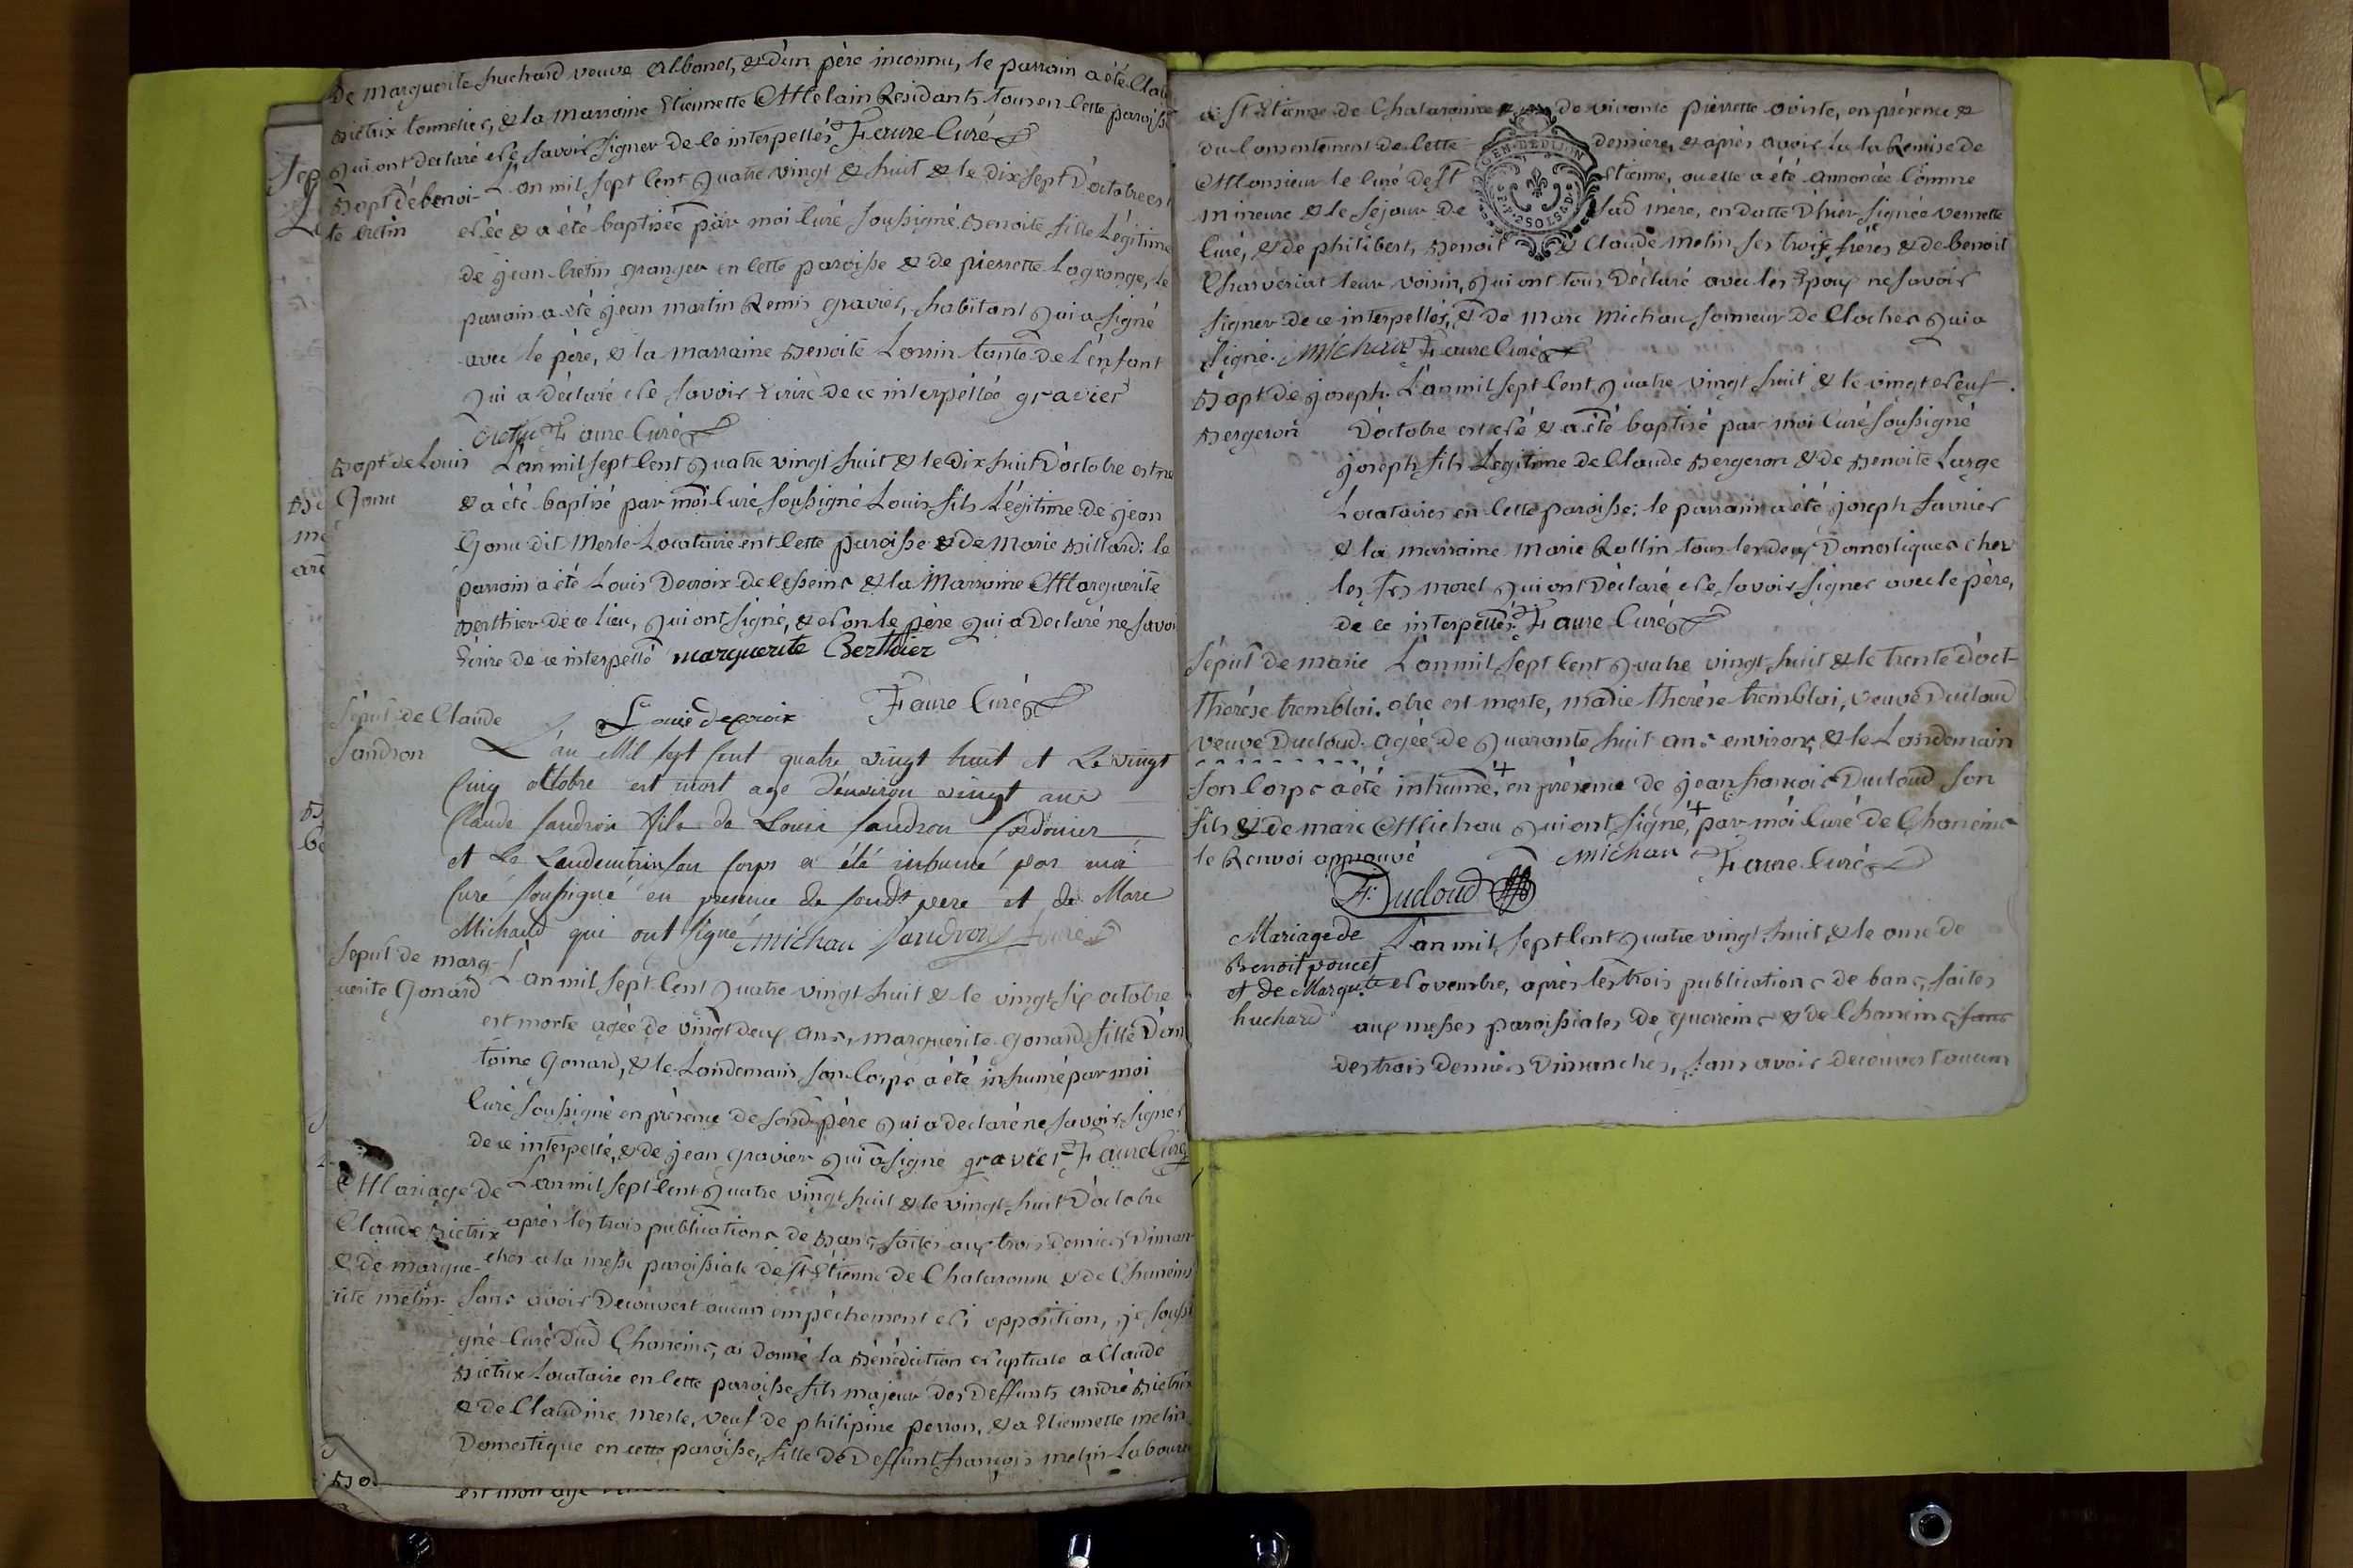 De marguerite huchard veuve Albonet, & d'un père inconnu, le parrain a été
Bietrix tonnelier, & la marraine Etiennette Mélain Residants tous en cette paroisse
qui ont declaré ne savoir signer de ce interpellés Faure Curé
Bapt. de benoi-
te cretin
L'an mil sept cent quatre vingt & huit & le dix sept d'octobre est
née & a été baptisée par moi curé soussigné Benoite fille Légitime
de jean cretin granger en cette paroisse & de pierrette Lagrange, le
parrain a été jean martin Remis gravier, habitant qui a signé
avec le père, & la marraine Benoite Lorrin tante de l'enfant
qui a déclaré ne savoir Ecrire de ce interpellée gravier
Cretin Faure Curé
Bapt de Louis
Gonu
L'an mil sept cent quatre vingt huit & le dix huit d'octobre est né
& a été baptisé par moi curé soussigné Louis fils Légitime de jean
Gonu dit Merle Locataire en cette paroisse & de Marie Billard: le
parrain a été Louis Decroix de cesseins & la Marraine Marguerite
Berthier de ce lieu, qui ont signé, & non le père qui a Declaré ne savoir
Ecrire de ce interpellé marguerite Berthier
Louis decroix Faure Curé
Sépul de Claude
Sandron
L'an Mil sept cent quatre vingt huit et Le vingt
cinq octobre est mort age d'environ vingt ans
Claude Sandron fils de Louis Sandron Cordonier
et Le Lendemain son corps a été inhumé par moi
Curé soussigné en presence de sondt pere et de Marc
Michaud qui ont signé michau Sandron Faure
Sepul de marg-
uerite Gonard
L'an mil sept cent quatre vingt huit & le vingt six octobre
est morte agée de vingt deux ans, marguerite Gonard fille d'an
toine Gonard, & le Landemain son corps a été inhumé par moi
Curé soussigné en présence de sond père qui a declaré ne savoir signer
de ce interpellé, & de jean gravier qui a signé gravier Faure Curé
Mariage de
Claude Bietrix
& de margue-
rite melin
L'an mil sept cent quatre vingt huit & le vingt huit d'octobre
après les trois publications de Bans, faites aux trois derniers diman-
ches a la messe paroissiale de St Etienne de Chalaronne & de Chaneins
sans avoir Decouvert aucun empêchement ni opposition, je soussi
gné curé dud Chaneins, ai donné la Bénédiction nuptiale a Claude
Bietrix Locataire en cette paroisse fils majeur des deffunts andré Bietrix
& de Claudine Merle, veuf de philipine perron, & a Etiennette melin
Domestique en cette paroisse, fille de Deffunt françois melin Laboureur
a St Etienne de Chalaronne & de vivante pierrette ointe, en présence &
du consentement de cette derniere, & après avoir lu la Remise de
Monsieur le curé de St Etienne, ou elle a été annoncée comme
mineure & le séjour de sad mère, en datte d'hier signée vernette
curé, & de philibert, Benoit & Claude melin, ses trois frères & de benoit
Charveriat leur voisin, qui ont tous Déclaré avec les Epoux ne savoir
signer de ce interpellés, & de Marc Michau sonneur de Cloches qui a
signé. Michau Faure Curé
GEN. DE DIJON
Bapt de joseph
Bergeron
L'an mil sept cent quatre vingt huit & le vingt neuf
d'octobre est né & a été baptisé par moi curé soussigné
joseph fils Légitime de Claude Bergeron & de Benoite Large
Locataires en cette paroisse: le parrain a été joseph favrier
& la marraine Marie Rollin tous les deux Domestiques chez
les srs morel qui ont Déclaré ne savoir signer avec le père,
de ce interpellés Faure Curé
Sépul de marie
thérèse tremblai,
veuve Ducloud.
L'an mil sept cent quatre vingt huit & le trente d'oct-
obre est morte, marie thérèse tremblai, veuve Ducloud
agée de quarante huit ans environs & le Landemain
son corps a été inhumé, en présence de jean francois Ducloud son
fils & de marc Michau qui ont signé, par moi curé de Chaneins
le Renvoi approuvé michau Faure Curé
F. Ducloud
Mariage de
Benoit poucet
et de Margu.te
huchard
L'an mil sept cent quatre vingt huit & le onze de
novembre, après les trois publications de bans, faites
aux messes paroissiales de guereins & de Chaneins, sans
des trois derniers Dimanches, sans avoir decouvert aucun